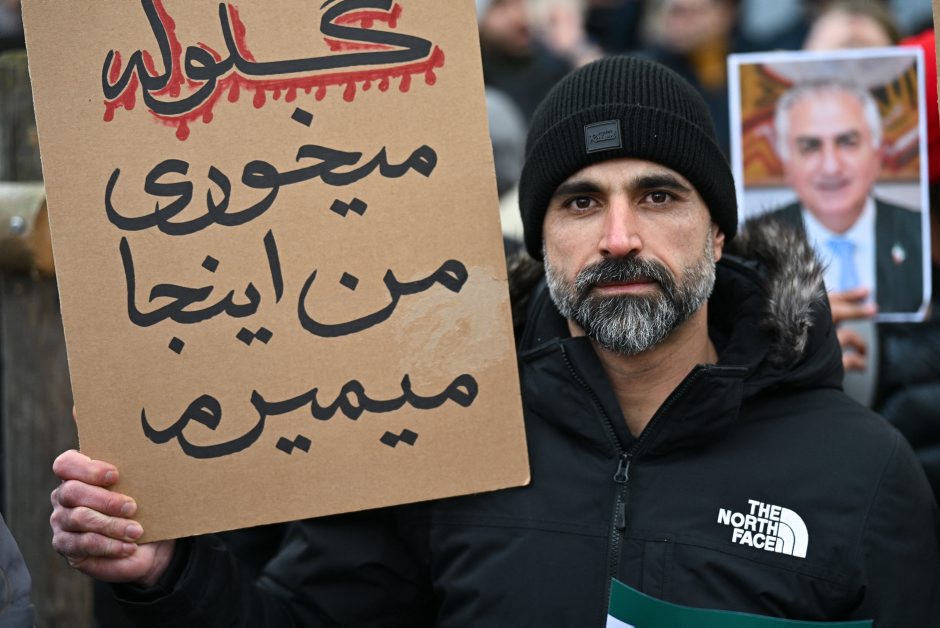 گلوله
میخوری
من اینجا
میمیرم
THE
NORTH
FACE